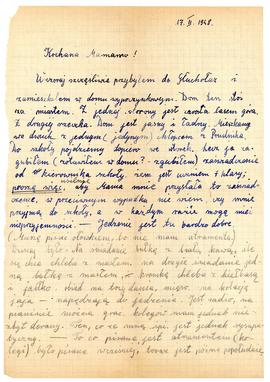 17. II. 1948.
Kochana Mamano!
Wczoraj szczęśliwie przybyłem do Głuchołaz i
zamieszkałem w domu wypoczynkowym. Dom ten stoi
za miastem. Z jednej strony jest zarosła lasem góra,
z drugiej rzeczka. Dom jest jasny i ładny. Mieszkamy
we dwóch z jednym (jedynym) chłopcem z Prudnika.
Do szkoły pojdziemy dopiero we dwórk, lecz ja za-
gubiłem (zostawiłem w domu? - zgubiłem) zaświadczenie
od kierownika szkoły, żem jest uczniem 7 klasy,
poproszę więc, aby Mama mnie przysłała to zaświad-
czenie, w przeciwnym wypadku nie wiem, czy mnie
przyjmą do szkoły, a w każdym razie mogą mieć
nieprzyjemności. — Jedzenie jest tu bardzo dobre.
(Muszę pisać ołówkiem, bo nie mam atramentu)
na śniadanie bułkę z białą kawą,
chleba z masłem, na drugie śniadanie jed-
ną bułkę z masłem, kromkę chleba z kiełbasą
i jabłko. Obiad na trzy dania, mięso. na kolację
jaja - napędzają do jedzenia. Jest radio, na
pianinie można grać, kolegów mam jednak nie
zbyt dużo. Ten, co ze mną śpi jest jednak sympa-
tyczny. — To co pisane jest atramentem (ko-
legi) było pisane wcześniej, teraz jest późne popołudnie